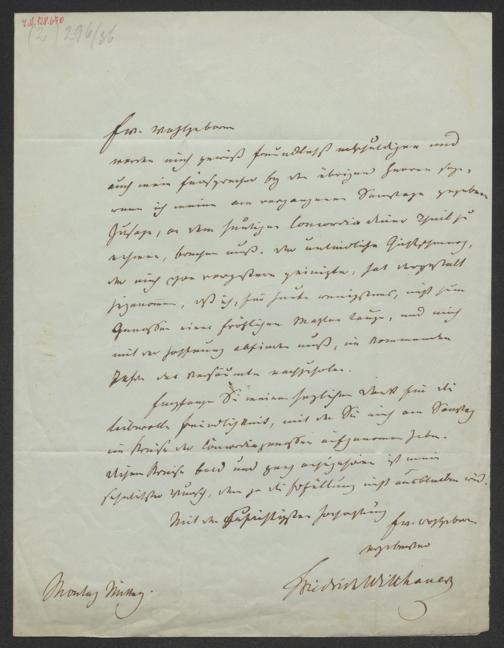 Ew. Wohlgeboren
werden mich gewiß freundlichst entschuldigen und
auch mein Fürsprecher bey den übrigen Herren seyn,
wenn ich meine am vergangenen Samstage gegebene
Zusage, an dem heutigen Concordia diner Theil zu
nehmen, brechen muß. Der
der mich schon vorgestern peinigte, hat dergestalt
zugenommen, daß ich, für heute wenigstens, nicht zum
Genossen eines fröhlichen Mahles tauge, und mich
mit der Hoffnung abfinden muß, im kommenden
Jahre das Versäumte nachzuholen.
Empfangen Sie meinen herzlichen Dank für die
liebevolle Freundlichkeit, mit der Sie mich am Samstag
im Kreise der Concordiagenossen aufgenommen haben.
Diesem Kreise bald und ganz anzugehören ist mein
Wunsch, dem ja die Erfüllung nicht ausbleiben wird.
Mit der aufrichtigsten Hochachtung
Ew. Wohlgeboren
ergebenster
Friedrich Witthauer
Montag Mittag.